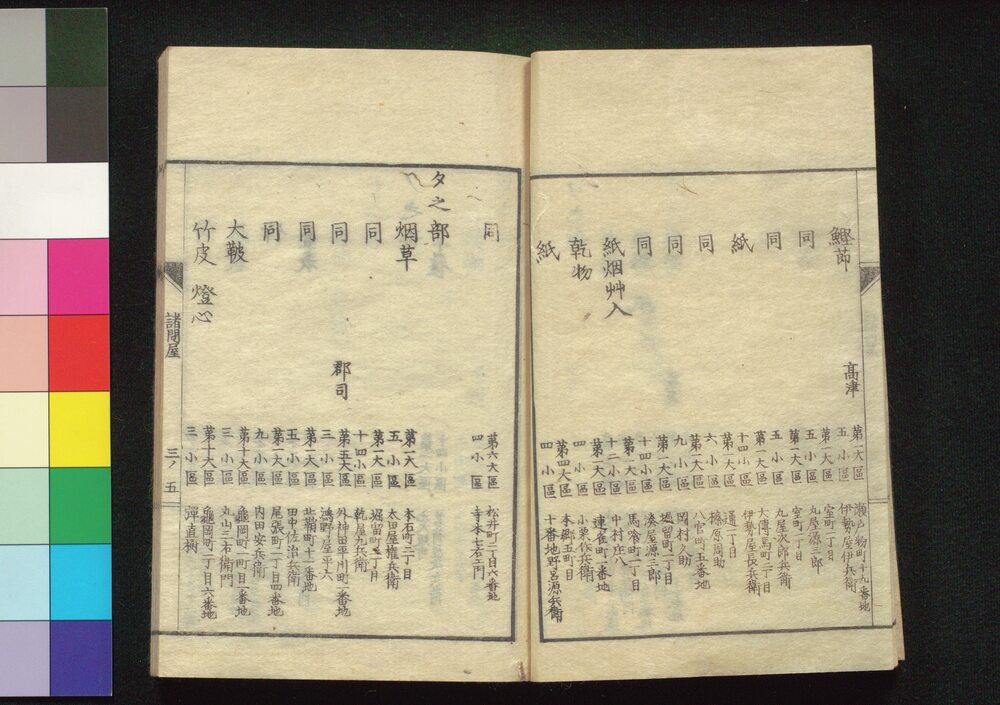 鰹節 高津 第一大區 瀬戸物町十九番地
五小區 伊勢屋伊兵衛
同 第一大區 室町一丁目
五小區 丸屋源三郎
同 第一大區 室町一丁目
五小區 丸屋次郎兵衛
紙 第一大區 大傳馬町二丁目
十四小區 伊勢屋長兵衛
同 第一大區 通一丁目
六小區 榛原周助
同 第一大區 八官町五番地
九小區 岡村久助
同 第一大區 堀留町一丁目
十四小區 湊屋源三郎
紙烟艸入 第一大區 馬喰町一丁目
十二小區 中村庄八
乾物 第一大區 連雀町一番地
四小區 小栗作兵衛
紙 第四大區 本郷五町目
四小區 十番地野呂源兵衛
同 第六大區 松井町一丁目六番地
四小區 寺本七右エ門
タ之部
烟草 第一大區 本石町二丁目
五小區 太田屋権兵衛
同 第一大區 堀留町一丁目
十四小區 乾屋九兵衛
同 郡司 第五大區 外神田平川町一番地
三小區 鴻野屋平六
同 第一大區 北鞘町十一番地
五小區 田中佐治兵衛
同 第一大區 尾張町二丁目四番地
九小區 内田安兵衛
大鞁 第十大區 龜岡町一町目一番地
三小區 丸山三右衛門
竹皮 燈心 第十大區 龜岡町一丁目六番地
三小區 彈直樹
諸問屋 三ノ五